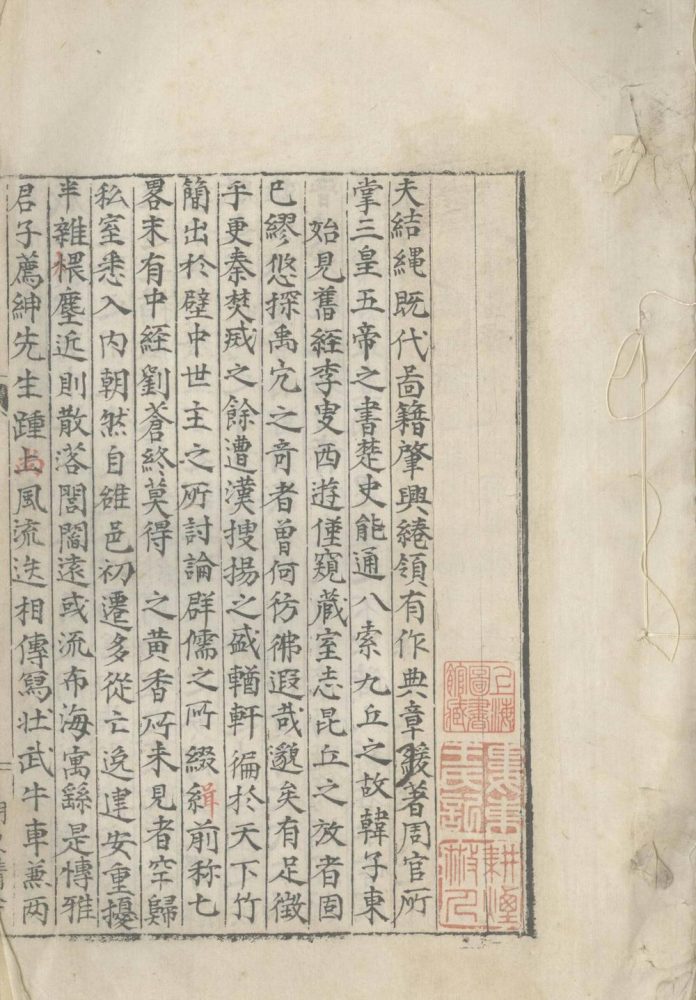 夫結繩既代啚籍肇興綣領有作典章緩著周官所
掌三皇五帝之書楚史能通八索九丘之故韓子東
始見舊経李叟西遊僅窺蔵室志昆丘之放者固
已繆悠探禹穴之奇者曾何彷彿遐哉邈矣有足徴
乎更秦焚烕之餘遭漢搜揚之盛輶軒徧於天下竹
簡出於壁中世主之所討論群儒之所綴緝前称七
畧末有中経劉蒼終莫得 之黄香所未見者罕歸
私室悉入内朝然自雒邑初遷多從亡逸建安重擾
半雜塵近則散落閭闔遠或流布海寓繇是愽雅
君子薦紳先生踵尚風流迭相傳寫壮武牛車兼兩
上海圖書館藏